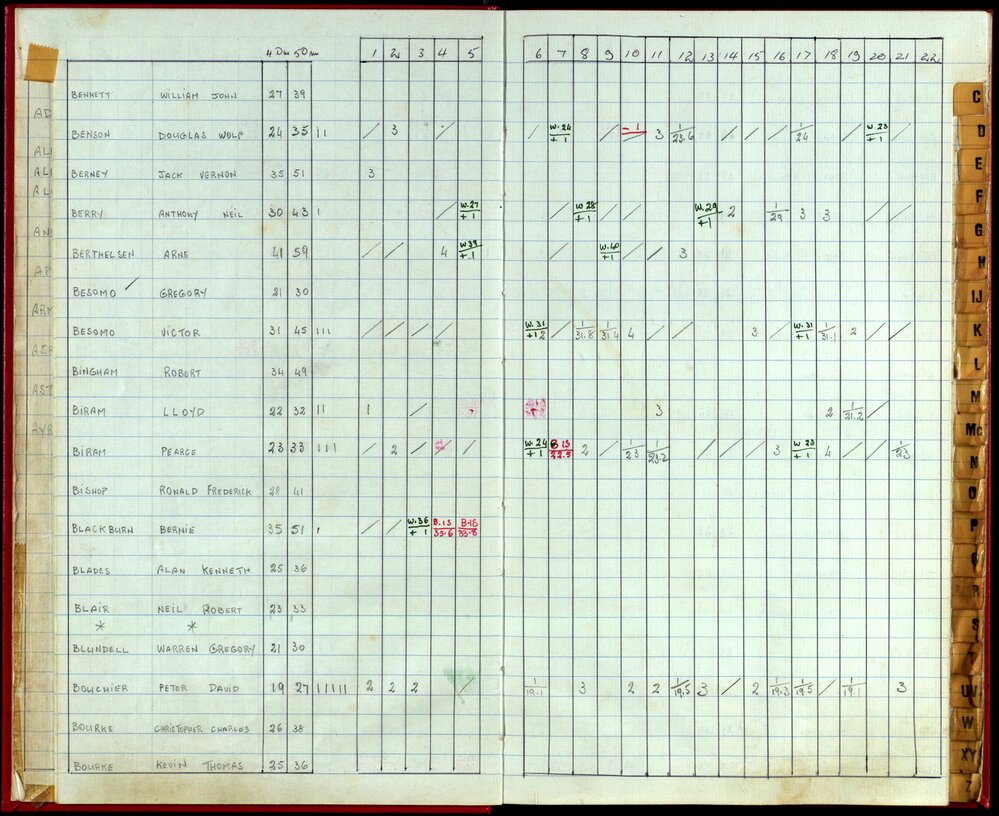 40m 50m 1 2 3 4 5 6 7 8 9 10 11 12 13 14 15 16 17 18 19 20 21 22
BENNETT WILLIAM JOHN 27 39
BENSON DOUGLAS WOLF 24 35 || / 3 / / W.24/+1 / -1 3 1/23.6 / / / 1/24 / W.23/+1 /
BERNEY JACK VERNON 35 51 3
BERRY ANTHONY NEIL 30 43 | / W.27/+1 / W.28/+1 / / W.29/+1 2 1/29 3 3 / /
BERTHELSEN ARNE 41 59 / / 4 W.39/+1 / W.40/+1 / / 3
BESOMO / GREGORY 21 30
BESOMO VICTOR 31 45 ||| / / / / W.31/+12 / 1/31.8 1/31.4 4 / / 3 W.31/+1 1/31.1 2 / /
BINGHAM ROBERT 34 49
BIRAM LLOYD 22 32 || 1 / 3 2 1/21.2 /
BIRAM PEARCE 23 33 ||| / 2 / / / W.24/+1 B 13/22.5 2 / 1/23 1/23.2 / / / 3 W.23/+1 4 / / 1/23
BISHOP RONALD FREDERICK 28 41
BLACKBURN BERNIE 35 51 / / W.36/+1 B.13/35.6 B.15/35.8
BLADES ALAN KENNETH 25 36
BLAIR NEIL ROBERT 23 33
* *
BLUNDELL WARREN GREGORY 21 30
BOUCHIER PETER DAVID 19 27 ||||| 2 2 2 / 1/19.1 3 2 2 1/19.5 3 / 2 1/19.3 1/19.5 / 1/19.1 3
BOURKE CHRISTOPHER CHARLES 26 38
BOURKE KEVIN THOMAS 25 36
AD
AL
AL
AL
AN
AP
ARM
ASH
AST
AYR
C
D
E
F
G
H
IJ
K
L
M
Mc
N
O
P
R
S
T
UV
W
XY
Z